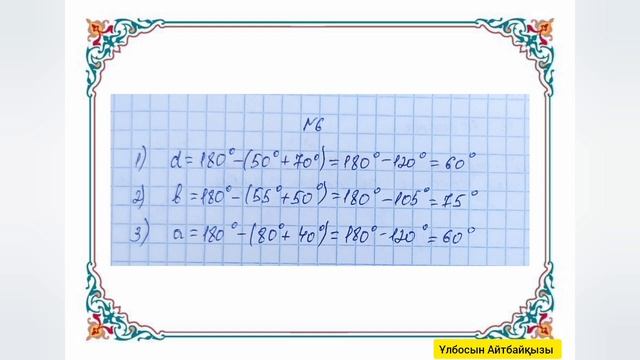 №6
1) d = 180° - (50° + 70°) = 180° - 120° = 60°
2) b = 180° - (55° + 50°) = 180° - 105° = 75°
3) a = 180° - (80° + 40°) = 180° - 120° = 60°
Ұлбосын Айтбайқызы